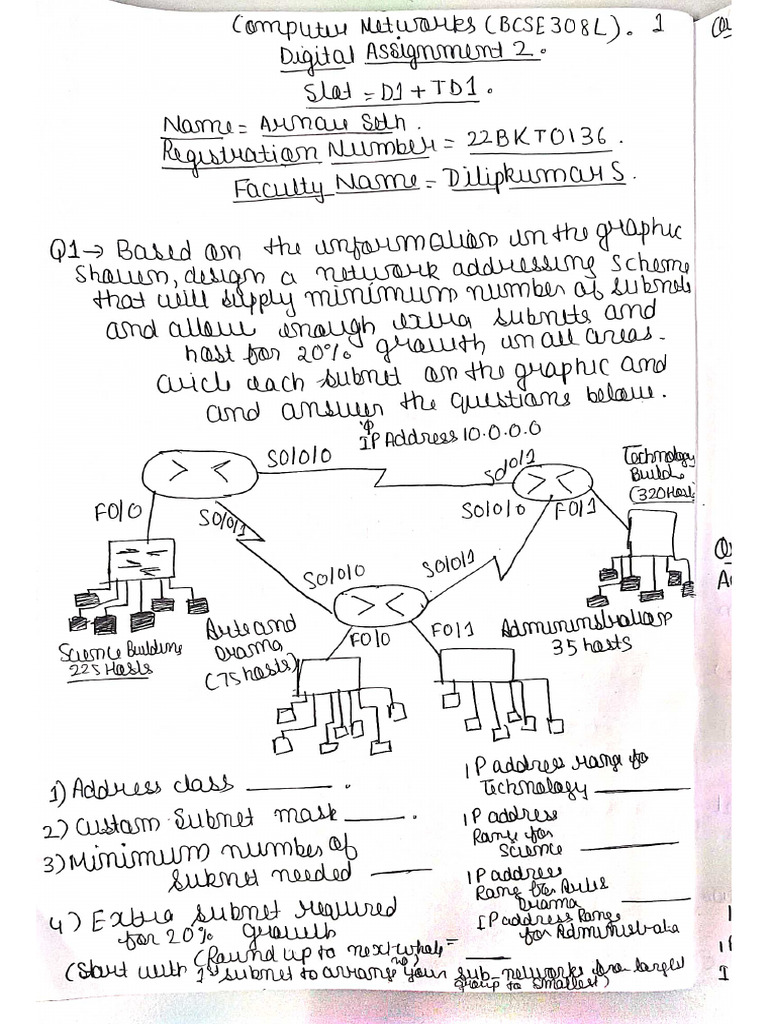 Computer Networks (BCSE308L). 1
Digital Assignment 2.
Slot = D1 + TD1.
Name = Arnav Seth
Registration Number = 22BKT0136.
Faculty Name = Dilipkumar S.
Q1 → Based on the information in the graphic
shown, design a network addressing scheme
that will supply minimum number of subnets
and allow enough extra subnets and
host for 20% growth in all areas.
each subnet on the graphic and
and answer the questions below.
IP Address 10.0.0.0
S0/0/0
S0/0/1
Technology
Build
(320 Hosts
F0/0
S0/0/1
S0/0/0
F0/1
S0/0/0
S0/0/1
Science Building
225 Hosts
Arts and
Drama
(75 hosts)
F0/0
F0/1
Administration
35 hosts
1) Address class ______.
2) Custom Subnet mask ______.
3) Minimum number of
subnet needed ______
4) Extra subnet required
for 20% growth
(Round up to next whole = ______
no)
(Start with 1st subnet to arrange your sub-networks from largest
group to smallest)
IP address range for
Technology ______
IP address
Range for
Science ______
IP address
Range for Arts
Drama ______
IP address Range
for Administratia